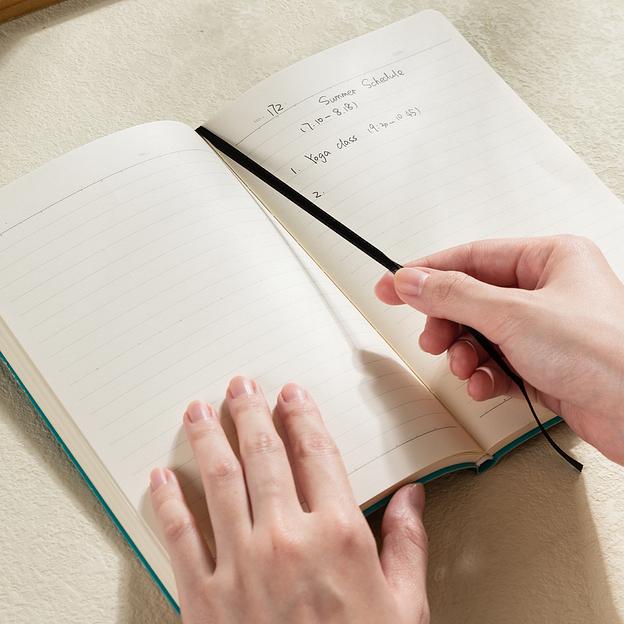 172
Summer Schedule
(7.10 - 8.18)
1. Yoga class (9:30 - 10:45)
2.